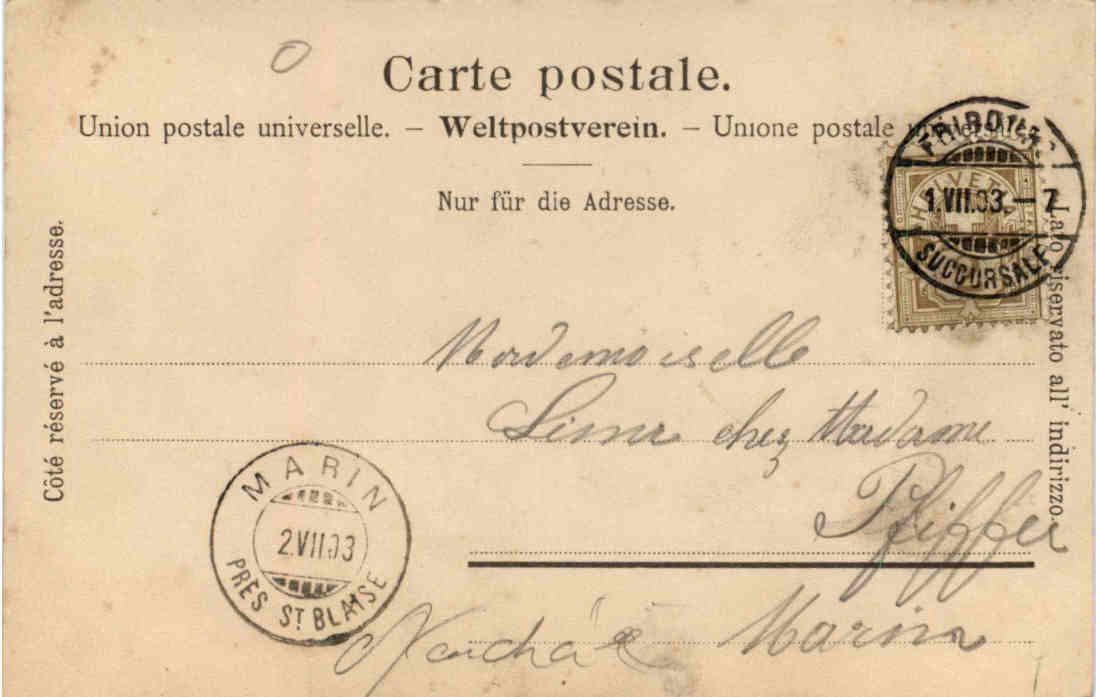 Carte postale.
Union postale universelle. – Weltpostverein. – Unione postale
Nur für die Adresse.
Côté réservé à l'adresse.
Lato riservato all' indirizzo.
FRIBOURG
1.VII.03.–7
SUCCURSALE
HELVETIA
Mademoiselle
chez Madame
Pfiffer
Marin
MARIN
2.VII.03
PRÈS ST BLAISE